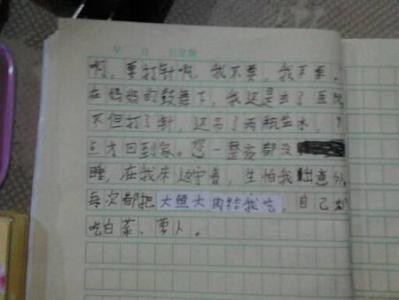 年 月 日 星期
啊，要打针啊，我不要，我不要。
在妈妈的鼓舞下，我还是去了医院
不但打了针，还吊了两瓶盐水，
才回到家。您一整夜都没
睡，在我床边守着，生怕我出意外
每次都把大鱼大肉给我吃，自己却
吃白菜、萝卜。